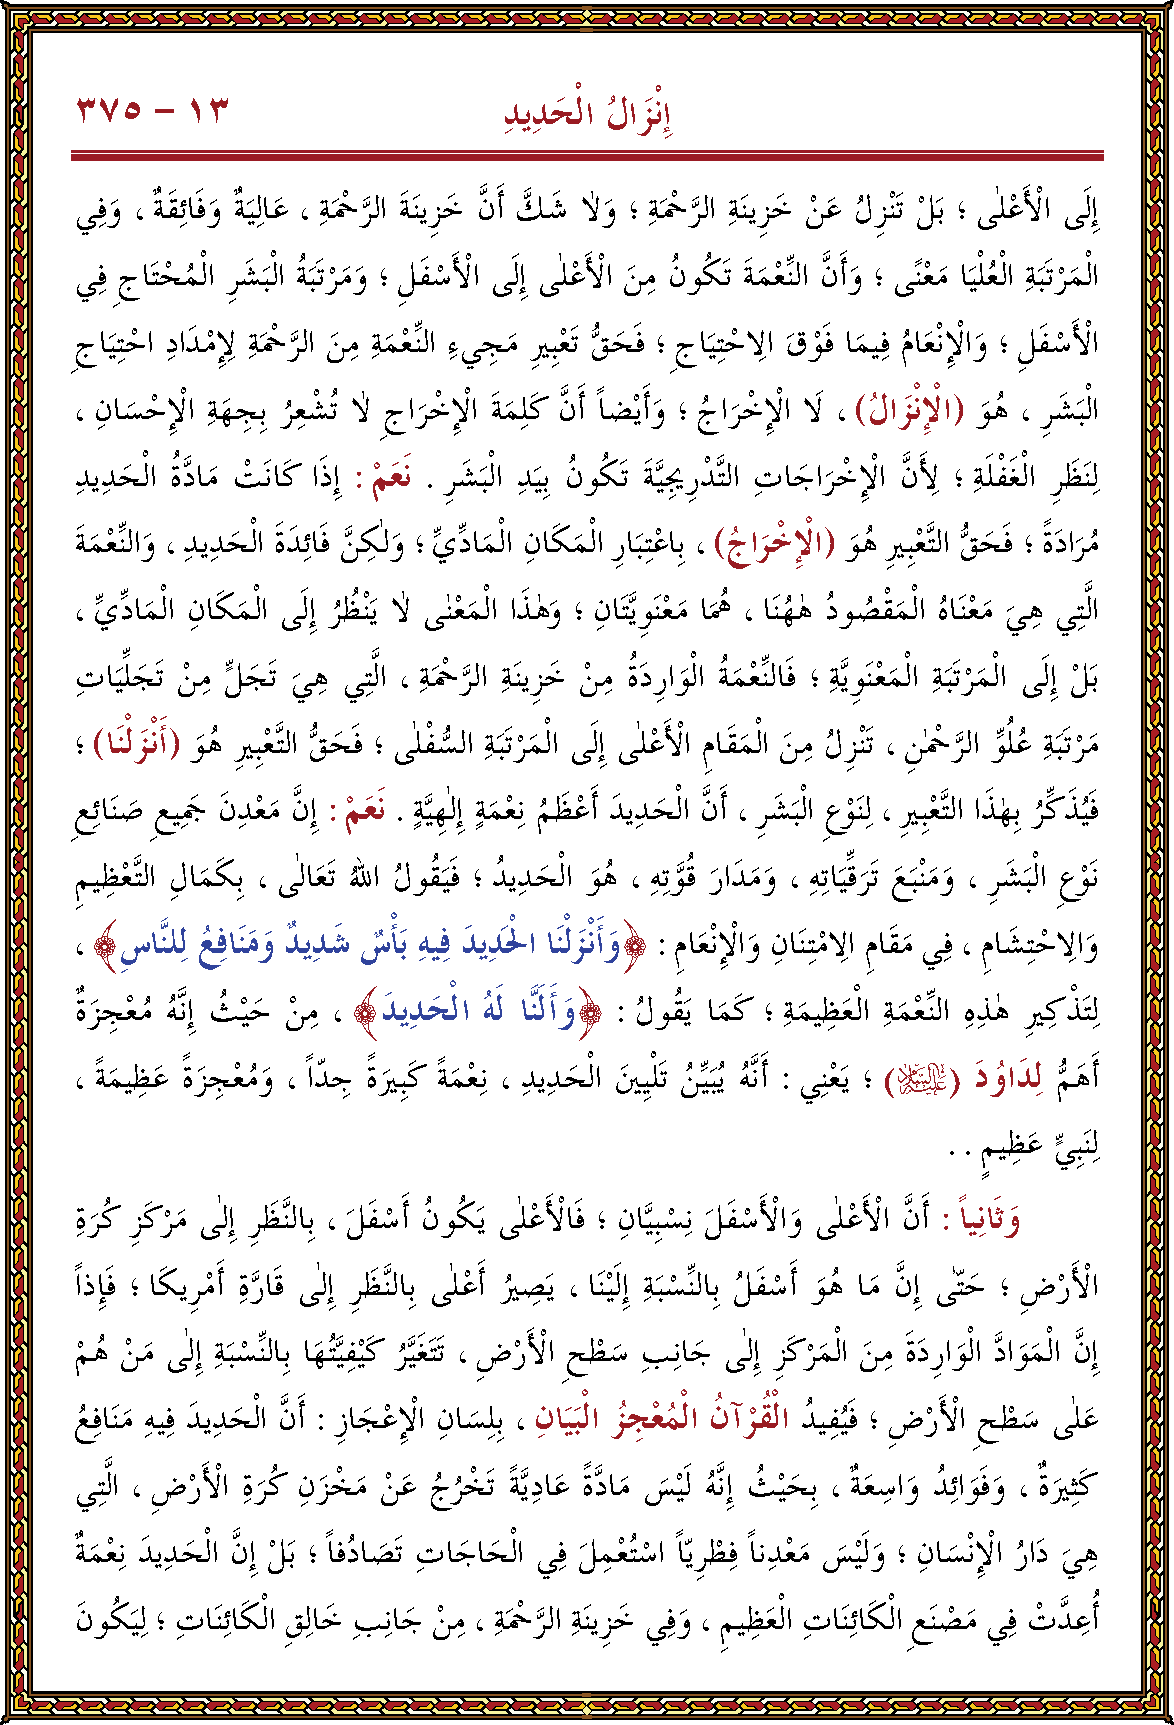 إِنْزَالُ الْحَدِيدِ ١٣ – ٣٧٥
إِلَى الْأَعْلٰى ؛ بَلْ تَنْزِلُ عَنْ خَزِينَةِ الرَّحْمَةِ ؛ وَلاٰ شَكَّ أَنَّ خَزِينَةَ الرَّحْمَةِ ، عَالِيَةٌ وَفَائِقَةٌ ، وَفِي
الْمَرْتَبَةِ الْعُلْيَا مَعْنًى ؛ وَأَنَّ النِّعْمَةَ تَكُونُ مِنَ الْأَعْلٰى إِلَى الْأَسْفَلِ ؛ وَمَرْتَبَةُ الْبَشَرِ الْمُحْتَاجِ فِي
الْأَسْفَلِ ؛ وَالْإِنْعَامُ فِيمَا فَوْقَ الِاحْتِيَاجِ ؛ فَحَقُّ تَعْبِيرِ مَجِيءِ النِّعْمَةِ مِنَ الرَّحْمَةِ لِإِمْدَادِ احْتِيَاجِ
الْبَشَرِ ، هُوَ (الْإِنْزَالُ) ، لَا الْإِخْرَاجُ ؛ وَأَيْضاً أَنَّ كَلِمَةَ الْإِخْرَاجِ لاٰ تُشْعِرُ بِجِهَةِ الْإِحْسَانِ ،
لِنَظَرِ الْغَفْلَةِ ؛ لِأَنَّ الْإِخْرَاجَاتِ التَّدْرِيجِيَّةَ تَكُونُ بِيَدِ الْبَشَرِ . نَعَمْ : إِذَا كَانَتْ مَادَّةُ الْحَدِيدِ
مُرَادَةً ؛ فَحَقُّ التَّعْبِيرِ هُوَ (الْإِخْرَاجُ) ، بِاعْتِبَارِ الْمَكَانِ الْمَادِّيِّ ؛ وَلٰكِنَّ فَائِدَةَ الْحَدِيدِ ، وَالنِّعْمَةَ
الَّتِي هِيَ مَعْنَاهُ الْمَقْصُودُ هٰهُنَا ، هُمَا مَعْنَوِيَّتَانِ ؛ وَهٰذَا الْمَعْنٰى لاٰ يُنْظَرُ إِلَى الْمَكَانِ الْمَادِّيِّ ،
بَلْ إِلَى الْمَرْتَبَةِ الْمَعْنَوِيَّةِ ؛ فَالنِّعْمَةُ الْوَارِدَةُ مِنْ خَزِينَةِ الرَّحْمَةِ ، الَّتِي هِيَ تَجَلٍّ مِنْ تَجَلِّيَاتِ
مَرْتَبَةِ عُلُوِّ الرَّحْمٰنِ ، تَنْزِلُ مِنَ الْمَقَامِ الْأَعْلٰى إِلَى الْمَرْتَبَةِ السُّفْلٰى ؛ فَحَقُّ التَّعْبِيرِ هُوَ (أَنْزَلْنَا) ؛
فَيُذَكِّرُ بِهٰذَا التَّعْبِيرِ ، لِنَوْعِ الْبَشَرِ ، أَنَّ الْحَدِيدَ أَعْظَمُ نِعْمَةٍ إِلٰهِيَّةٍ . نَعَمْ : إِنَّ مَعْدِنَ جَمِيعِ صَنَائِعِ
نَوْعِ الْبَشَرِ ، وَمَنْبَعَ تَرَقِّيَاتِهِ ، وَمَدَارَ قُوَّتِهِ ، هُوَ الْحَدِيدُ ؛ فَيَقُولُ اللهُ تَعَالٰى ، بِكَمَالِ التَّعْظِيمِ
وَالِاحْتِشَامِ ، فِي مَقَامِ الِامْتِنَانِ وَالْإِنْعَامِ : ﴿وَأَنْزَلْنَا الْحَدِيدَ فِيهِ بَأْسٌ شَدِيدٌ وَمَنَافِعُ لِلنَّاسِ﴾ ،
لِتَذْكِيرِ هٰذِهِ النِّعْمَةِ الْعَظِيمَةِ ؛ كَمَا يَقُولُ : ﴿وَأَلَنَّا لَهُ الْحَدِيدَ﴾ ، مِنْ حَيْثُ إِنَّهُ مُعْجِزَةٌ
أَهَمُّ لِدَاوُدَ (عليه السلام) ؛ يَعْنِي : أَنَّهُ يُبَيِّنُ تَلْيِينَ الْحَدِيدِ ، نِعْمَةً كَبِيرَةً جِدّاً ، وَمُعْجِزَةً عَظِيمَةً ،
لِنَبِيٍّ عَظِيمٍ . .
وَثَانِياً : أَنَّ الْأَعْلٰى وَالْأَسْفَلَ نِسْبِيَّانِ ؛ فَالْأَعْلٰى يَكُونُ أَسْفَلَ ، بِالنَّظَرِ إِلٰى مَرْكَزِ كُرَةِ
الْأَرْضِ ؛ حَتّٰى إِنَّ مَا هُوَ أَسْفَلُ بِالنِّسْبَةِ إِلَيْنَا ، يَصِيرُ أَعْلٰى بِالنَّظَرِ إِلٰى قَارَّةِ أَمْرِيكَا ؛ فَإِذاً
إِنَّ الْمَوَادَّ الْوَارِدَةَ مِنَ الْمَرْكَزِ إِلٰى جَانِبِ سَطْحِ الْأَرْضِ ، تَتَغَيَّرُ كَيْفِيَّتُهَا بِالنِّسْبَةِ إِلٰى مَنْ هُمْ
عَلٰى سَطْحِ الْأَرْضِ ؛ فَيُفِيدُ الْقُرْآنُ الْمُعْجِزُ الْبَيَانِ ، بِلِسَانِ الْإِعْجَازِ : أَنَّ الْحَدِيدَ فِيهِ مَنَافِعُ
كَثِيرَةٌ ، وَفَوَائِدُ وَاسِعَةٌ ، بِحَيْثُ إِنَّهُ لَيْسَ مَادَّةً عَادِيَّةً تَخْرُجُ عَنْ مَخْزَنِ كُرَةِ الْأَرْضِ ، الَّتِي
هِيَ دَارُ الْإِنْسَانِ ؛ وَلَيْسَ مَعْدِناً فِطْرِيّاً اسْتُعْمِلَ فِي الْحَاجَاتِ تَصَادُفاً ؛ بَلْ إِنَّ الْحَدِيدَ نِعْمَةٌ
أُعِدَّتْ فِي مَصْنَعِ الْكَائِنَاتِ الْعَظِيمِ ، وَفِي خَزِينَةِ الرَّحْمَةِ ، مِنْ جَانِبِ خَالِقِ الْكَائِنَاتِ ؛ لِيَكُونَ